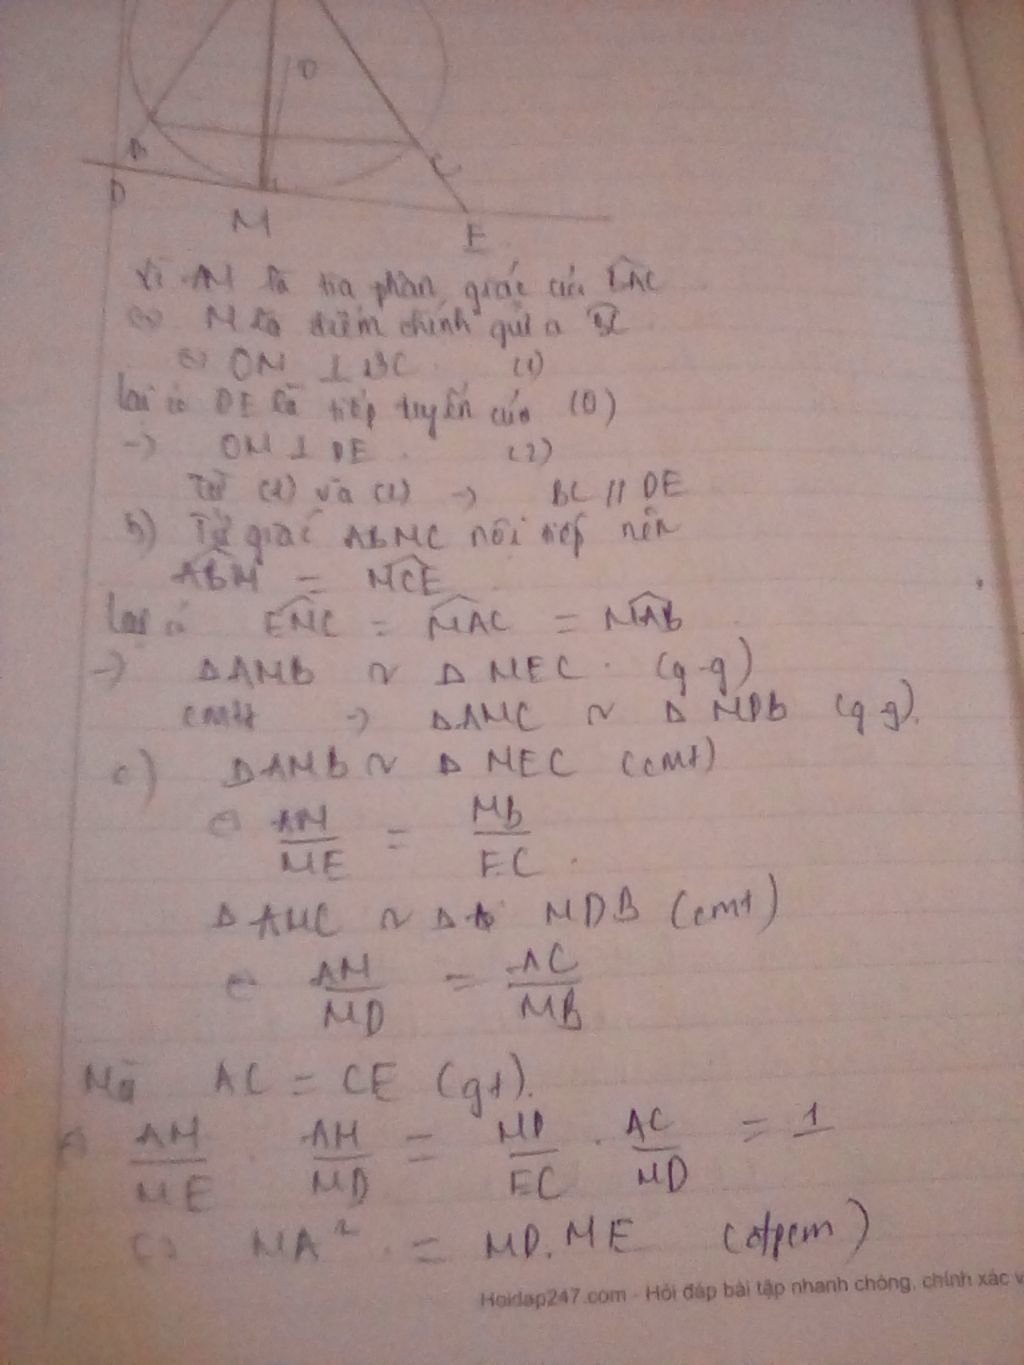 O
B
C
D
M
E
Vì AM là tia phân giác của BAC
=> M là điểm chính giữa BC
=> OM ⊥ BC (1)
lại có DE là tiếp tuyến của (O)
-> OM ⊥ DE (2)
Từ (1) và (2) -> BC // DE
b) Tứ giác ABMC nội tiếp nên
ABM = MCE
Lại có EMC = MAC = MAB
-> Δ AMB ~ Δ MEC (g-g)
cmtt -> Δ AMC ~ Δ MDB (g-g).
c) Δ AMB ~ Δ MEC (cmt)
=> AM/ME = MB/EC
Δ AMC ~ Δ MDB (cmt)
=> AM/MD = AC/MB
Mà AC = CE (gt).
=> AM/ME . AM/MD = MB/EC . AC/MB = 1
=> MA² = MD.ME (đpcm)
Hoidap247.com - Hỏi đáp bài tập nhanh chóng, chính xác